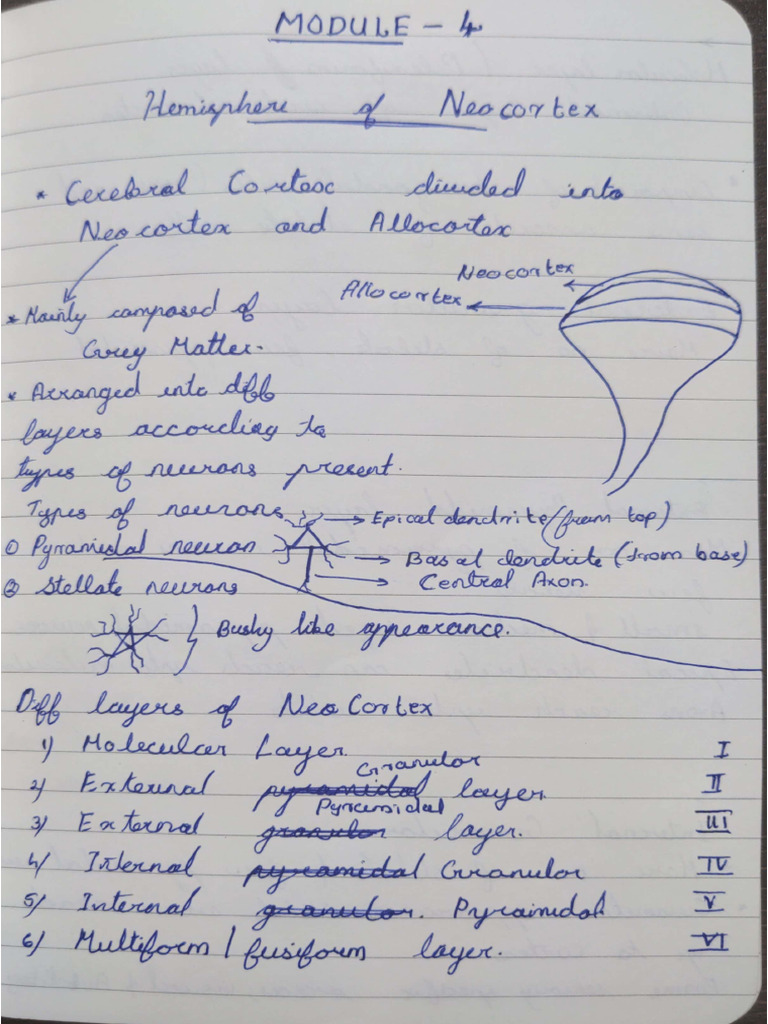 MODULE - 4
Hemisphere of Neocortex
* Cerebral Cortex divided into
Neocortex and Allocortex
Neocortex
Allocortex
* Mainly composed of
Grey Matter.
* Arranged into diff
layers according to
types of neurons present.
Types of neurons
Epical dendrite (from top)
① Pyramidal neuron
Basal dendrite (from base)
Central Axon.
② Stellate neurons
Bushy like appearance.
Diff layers of NeoCortex
1) Molecular Layer. I
2) External pyramidal Granular layer. II
3) External granular Pyramidal layer. III
4) Internal pyramidal Granular IV
5) Internal granular. Pyramidal V
6) Multiform / fusiform layer. VI